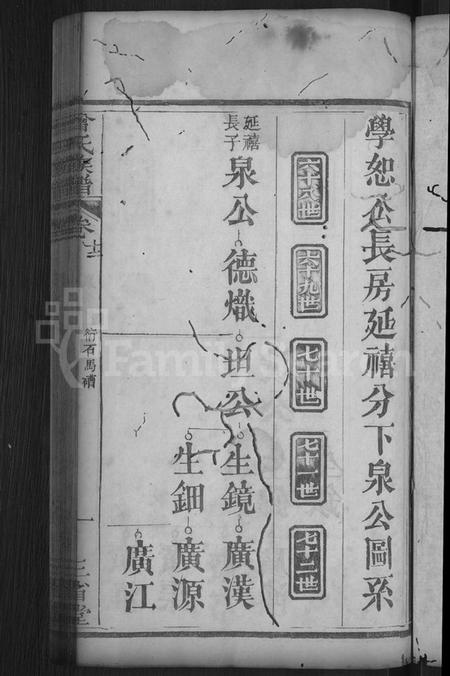 學恕公長房延禧分下泉公圖系
六十八世
六十九世
七十世
七十一世
七十二世
延禧
長子
泉公
德熾
坦公
生鏡
廣漢
生鈿
廣源
廣江
曾氏族譜
卷之
衍石馬灣
一
三省堂
FamilySearch